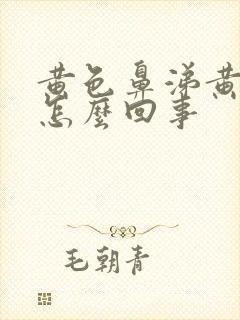 黄色鼻涕黄
怎麼回事
毛朝青